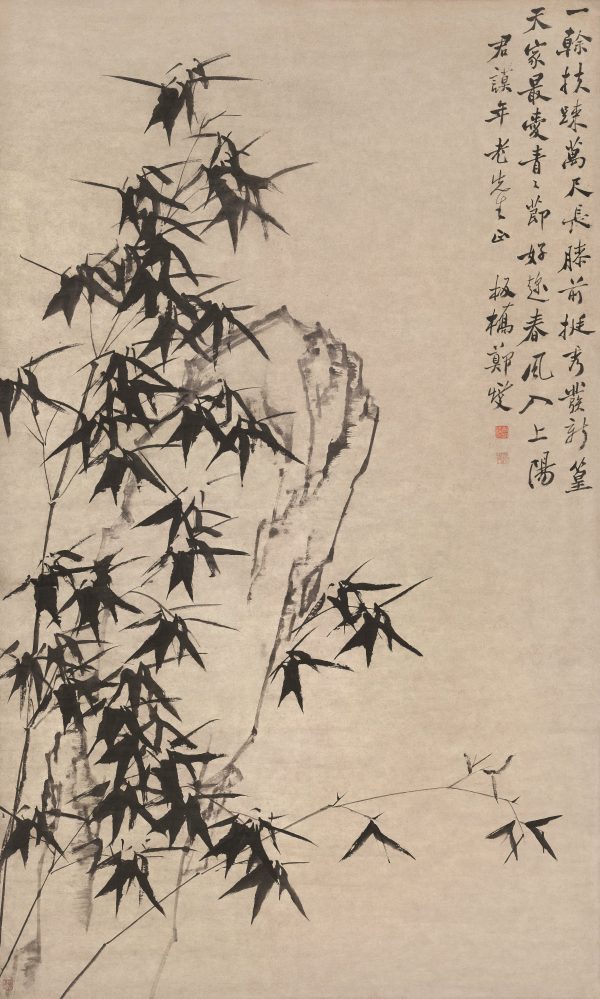 一榦扶踈萬尺長膝前挺秀發新篁
天家最愛青〻節好趂春風入上陽
君謨年老先生正 板橋鄭燮